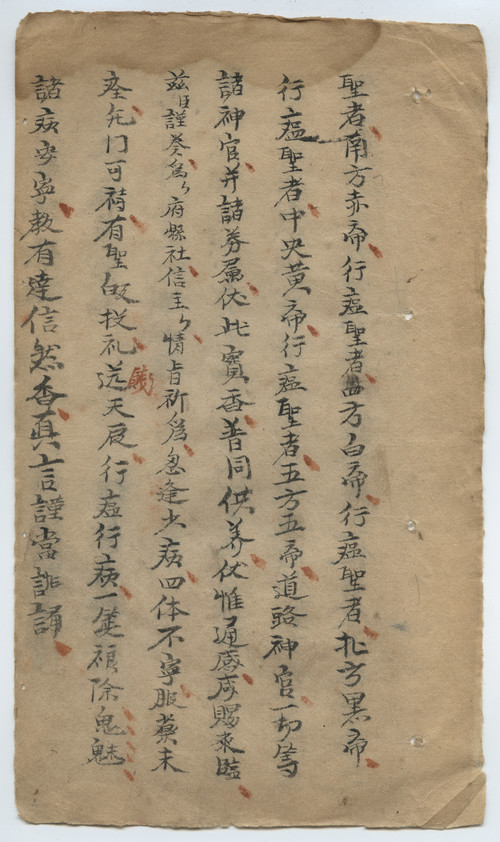 聖者南方赤帝行瘟聖者西方白帝行瘟聖者北方黒帝
行瘟聖者中央黄帝行瘟聖者五方五帝道路神官一切等
諸神官并諸券属伏此寳香普同供养伏惟通感咸賜來臨
兹日謹癸爲〻府縣社信主〻情旨祈爲忽逢少病四体不寜服藥未
痊先门可祷有聖皈投礼送餞天展行瘟行病一筵禳除鬼魅
諸病安寜教有達信然香真言謹當誹誦